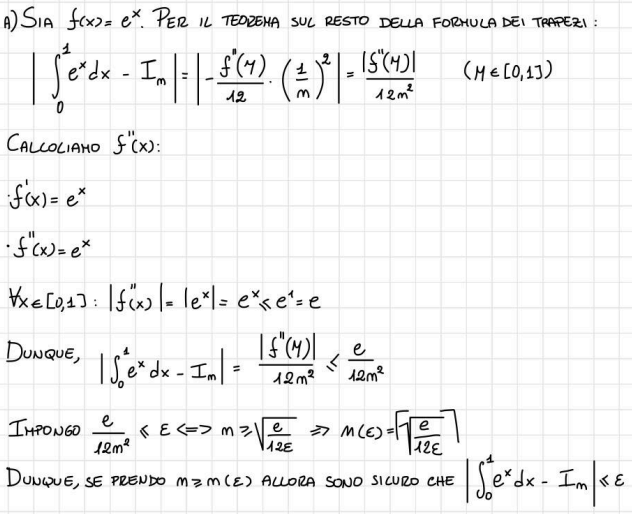 A) SIA f(x) = e^x. PER IL TEOREMA SUL RESTO DELLA FORMULA DEI TRAPEZI :
| ∫_0^1 e^x dx - I_m | = | - f''(η)/12 · (1/m)^2 | = |f''(η)|/12m^2 (η ∈ [0,1])
CALCOLIAMO f''(x):
· f'(x) = e^x
· f''(x) = e^x
∀x ∈ [0,1] : |f''(x)| = |e^x| = e^x ≤ e^1 = e
DUNQUE, | ∫_0^1 e^x dx - I_m | = |f''(η)|/12m^2 ≤ e/12m^2
IMPONGO e/12m^2 ≤ ε <=> m ≥ √(e/12ε) => m(ε) = ⌈√(e/12ε)⌉
DUNQUE, SE PRENDO m ≥ m(ε) ALLORA SONO SICURO CHE | ∫_0^1 e^x dx - I_m | ≤ ε